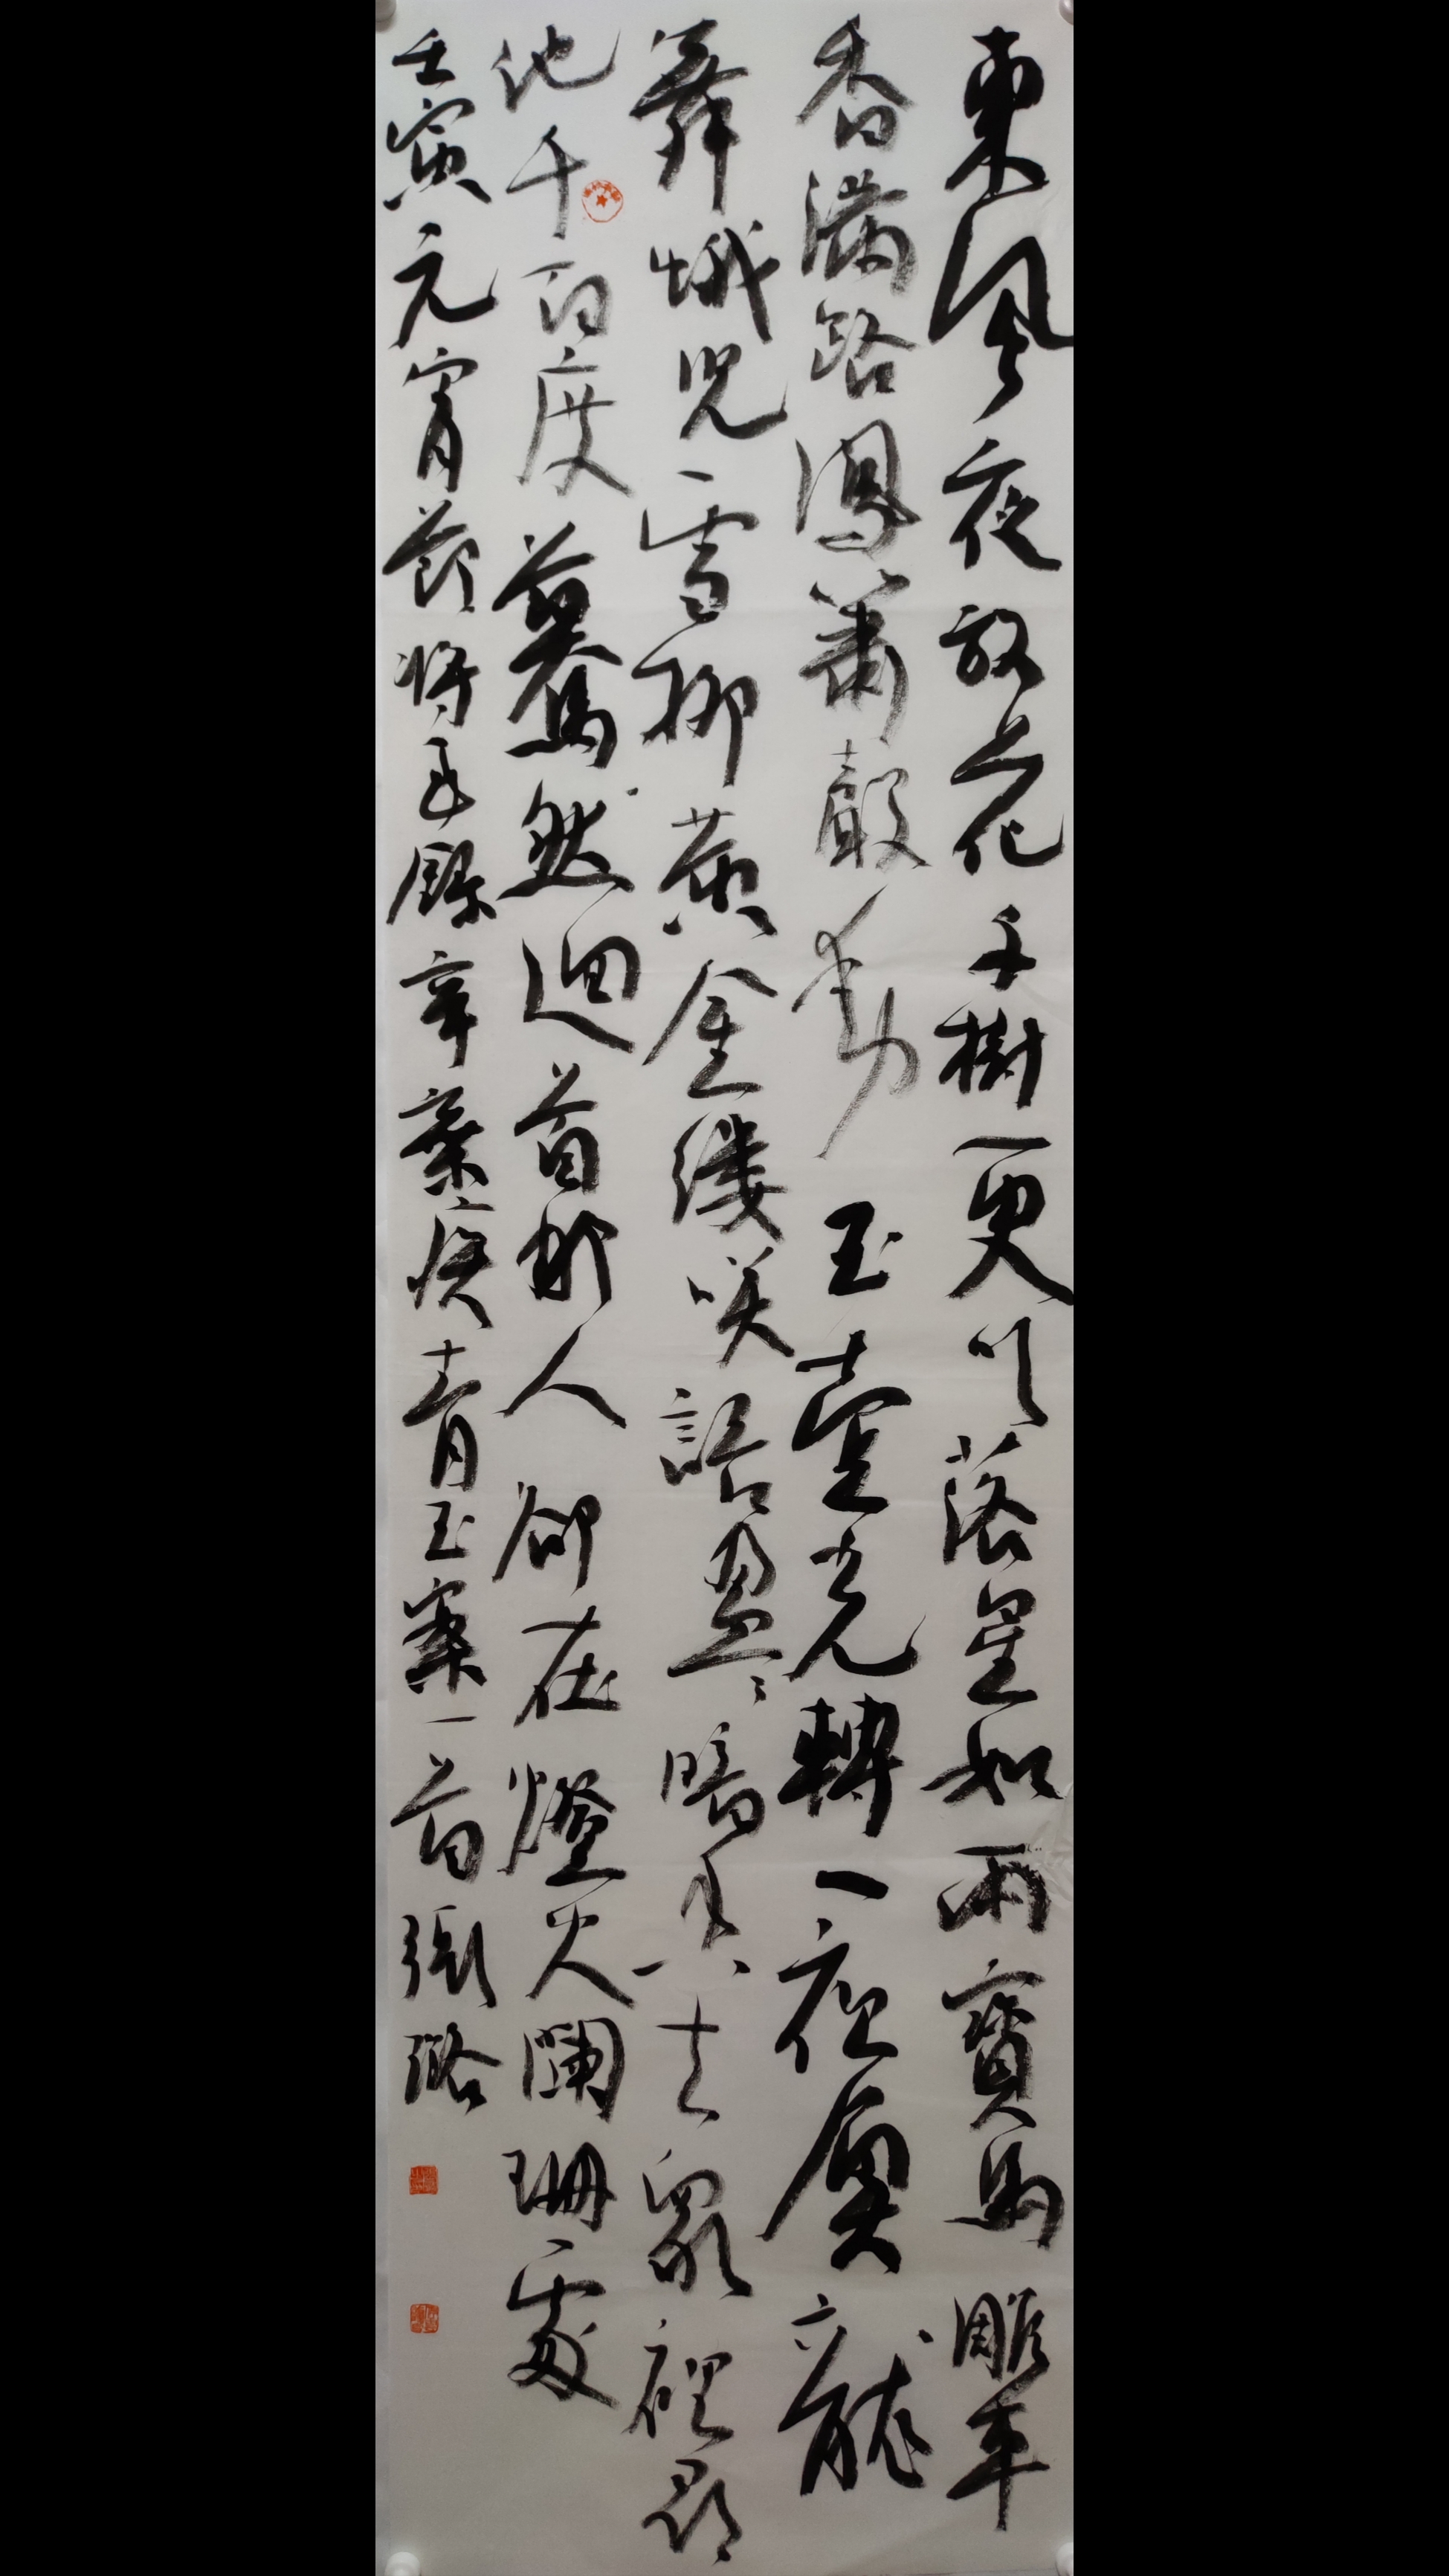 東風夜放花千樹更吹落星如雨寶馬雕車
香滿路鳳簫聲動玉壺光轉一夜魚龍
舞蛾兒雪柳黃金縷笑語盈〻暗香去眾裡尋
他千百度驀然迴首那人卻在燈火闌珊處
壬寅元宵節將至錄辛棄疾青玉案一首張璐